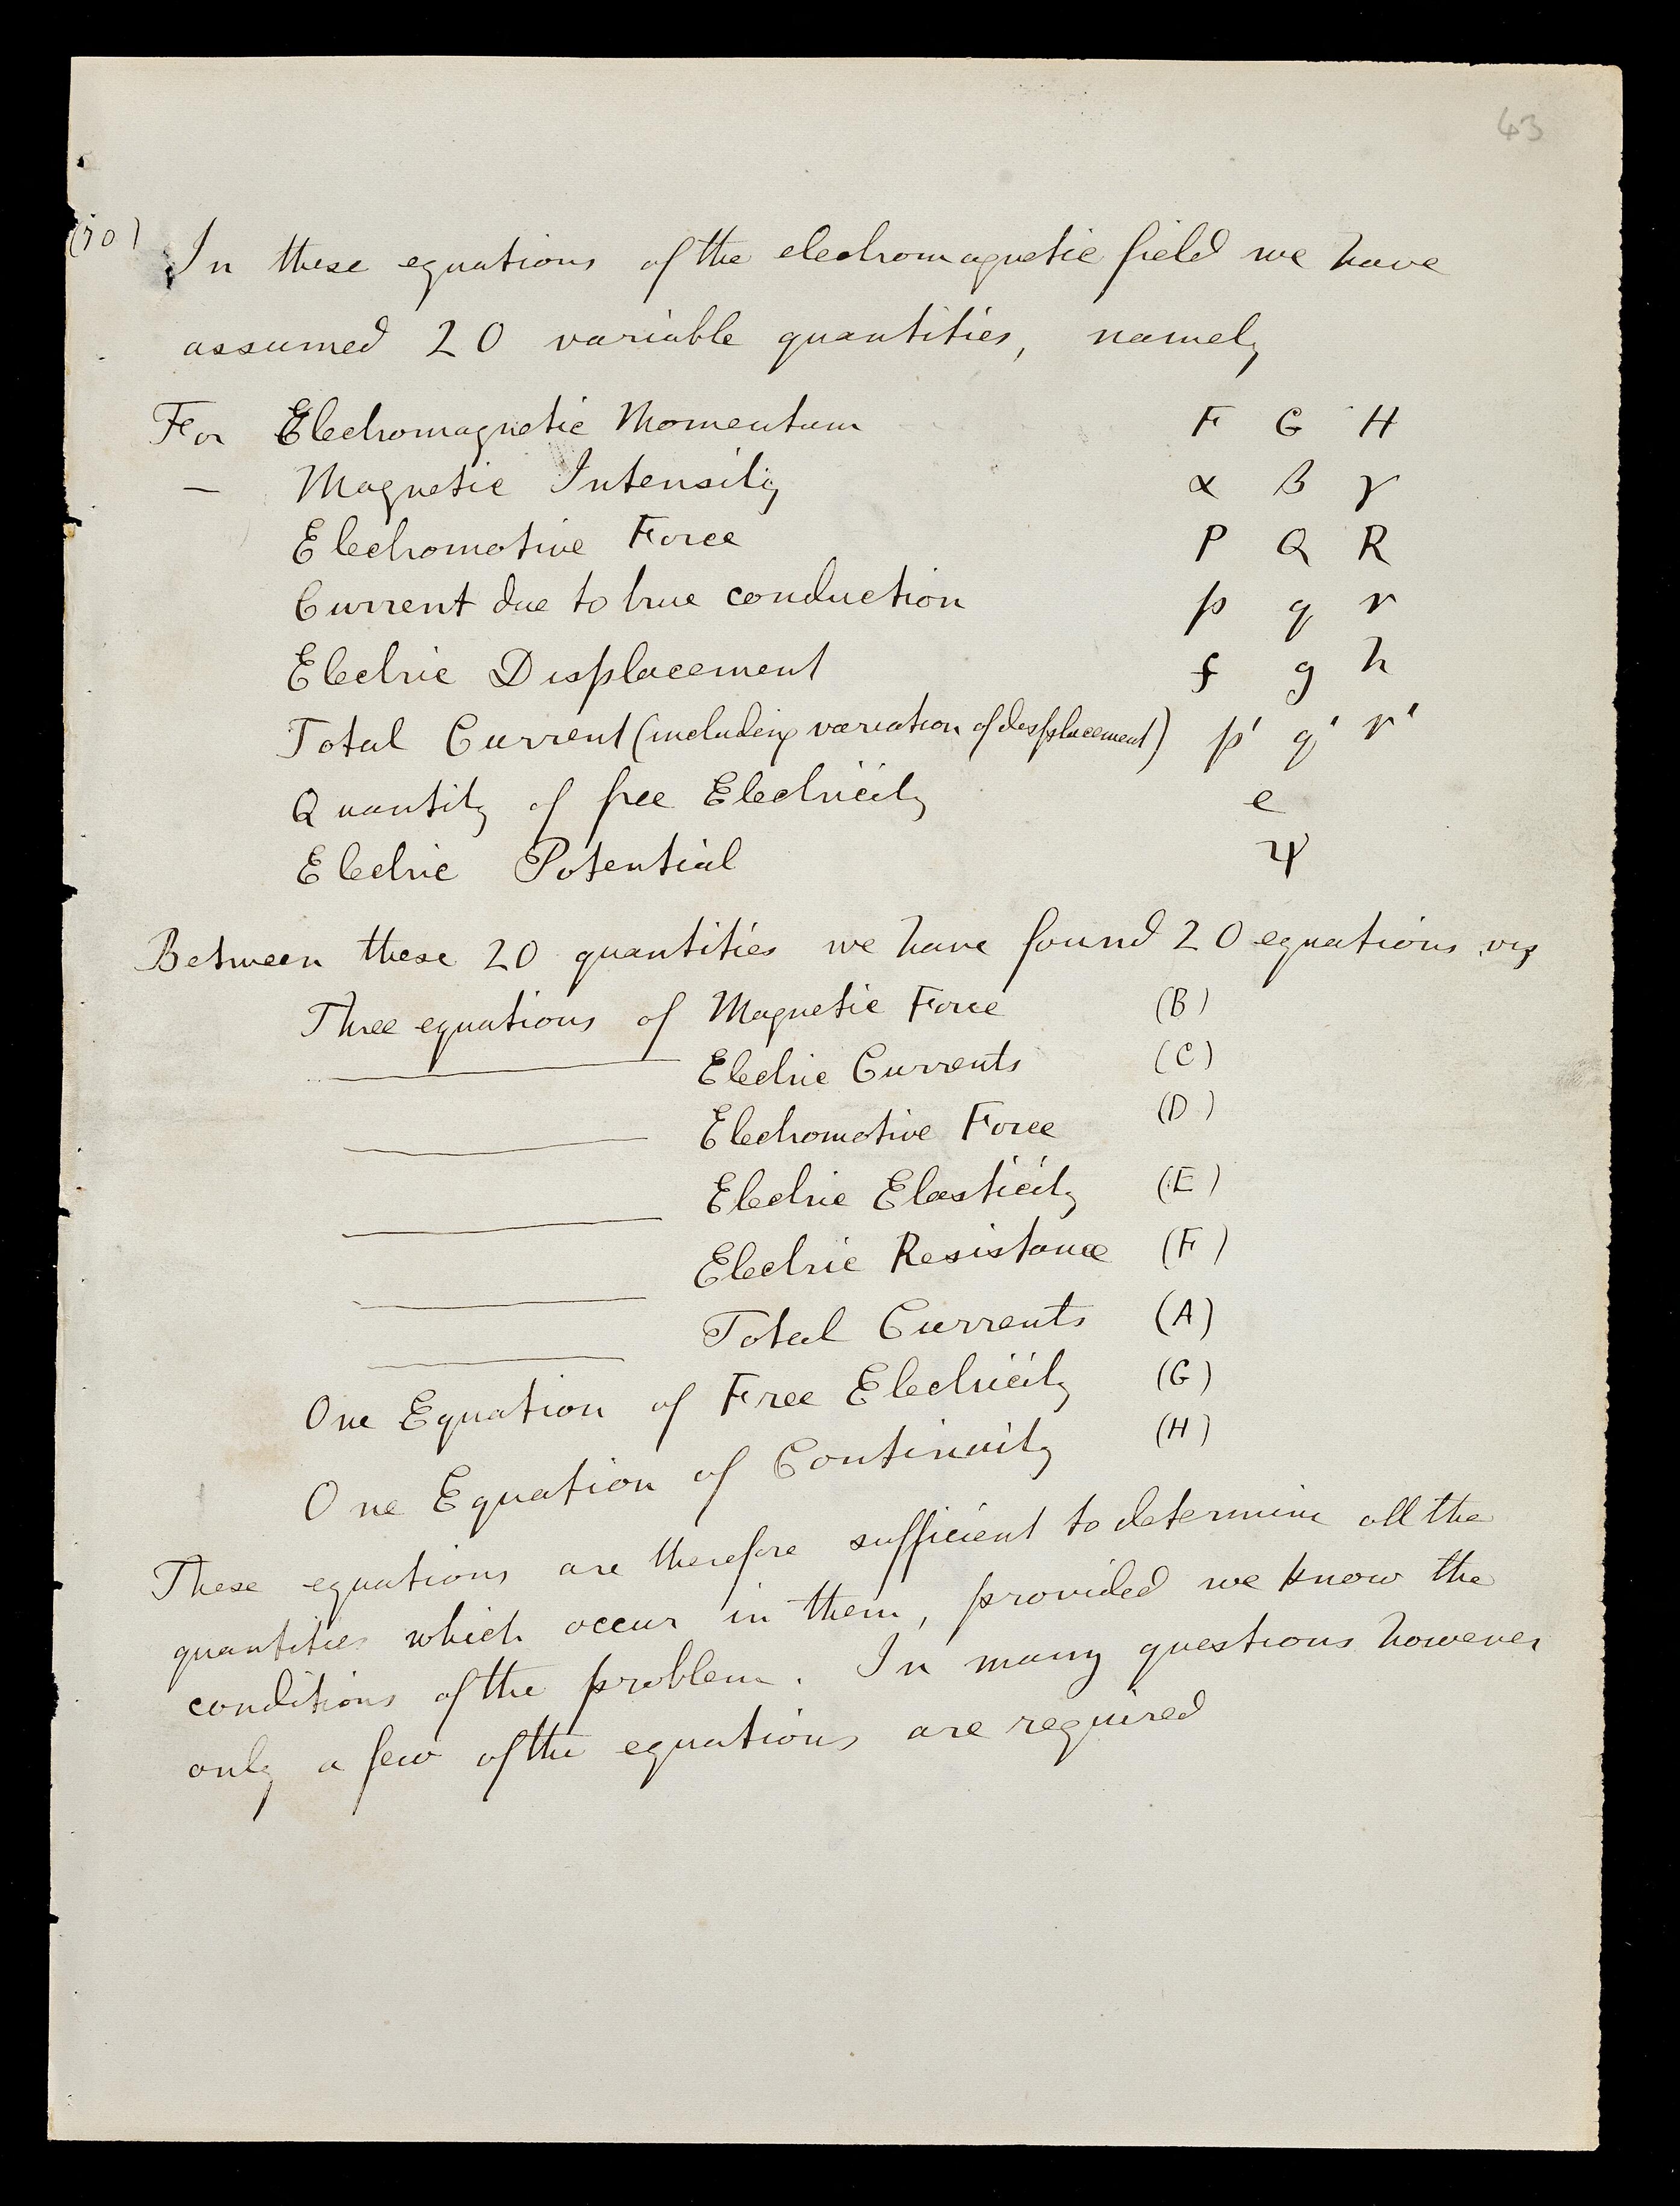 43
(70) In these equations of the electromagnetic field we have
assumed 20 variable quantities, namely
For Electromagnetic Momentum F G H
— Magnetic Intensity α β γ
Electromotive Force P Q R
Current due to true conduction p q r
Electric Displacement f g h
Total Current (including variation of displacement) p' q' r'
Quantity of free Electricity e
Electric Potential Ψ
Between these 20 quantities we have found 20 equations viz
Three equations of Magnetic Force (B)
——— Electric Currents (C)
——— Electromotive Force (D)
——— Electric Elasticity (E)
——— Electric Resistance (F)
——— Total Currents (A)
One Equation of Free Electricity (G)
One Equation of Continuity (H)
These equations are therefore sufficient to determine all the
quantities which occur in them, provided we know the
conditions of the problem. In many questions however
only a few of the equations are required